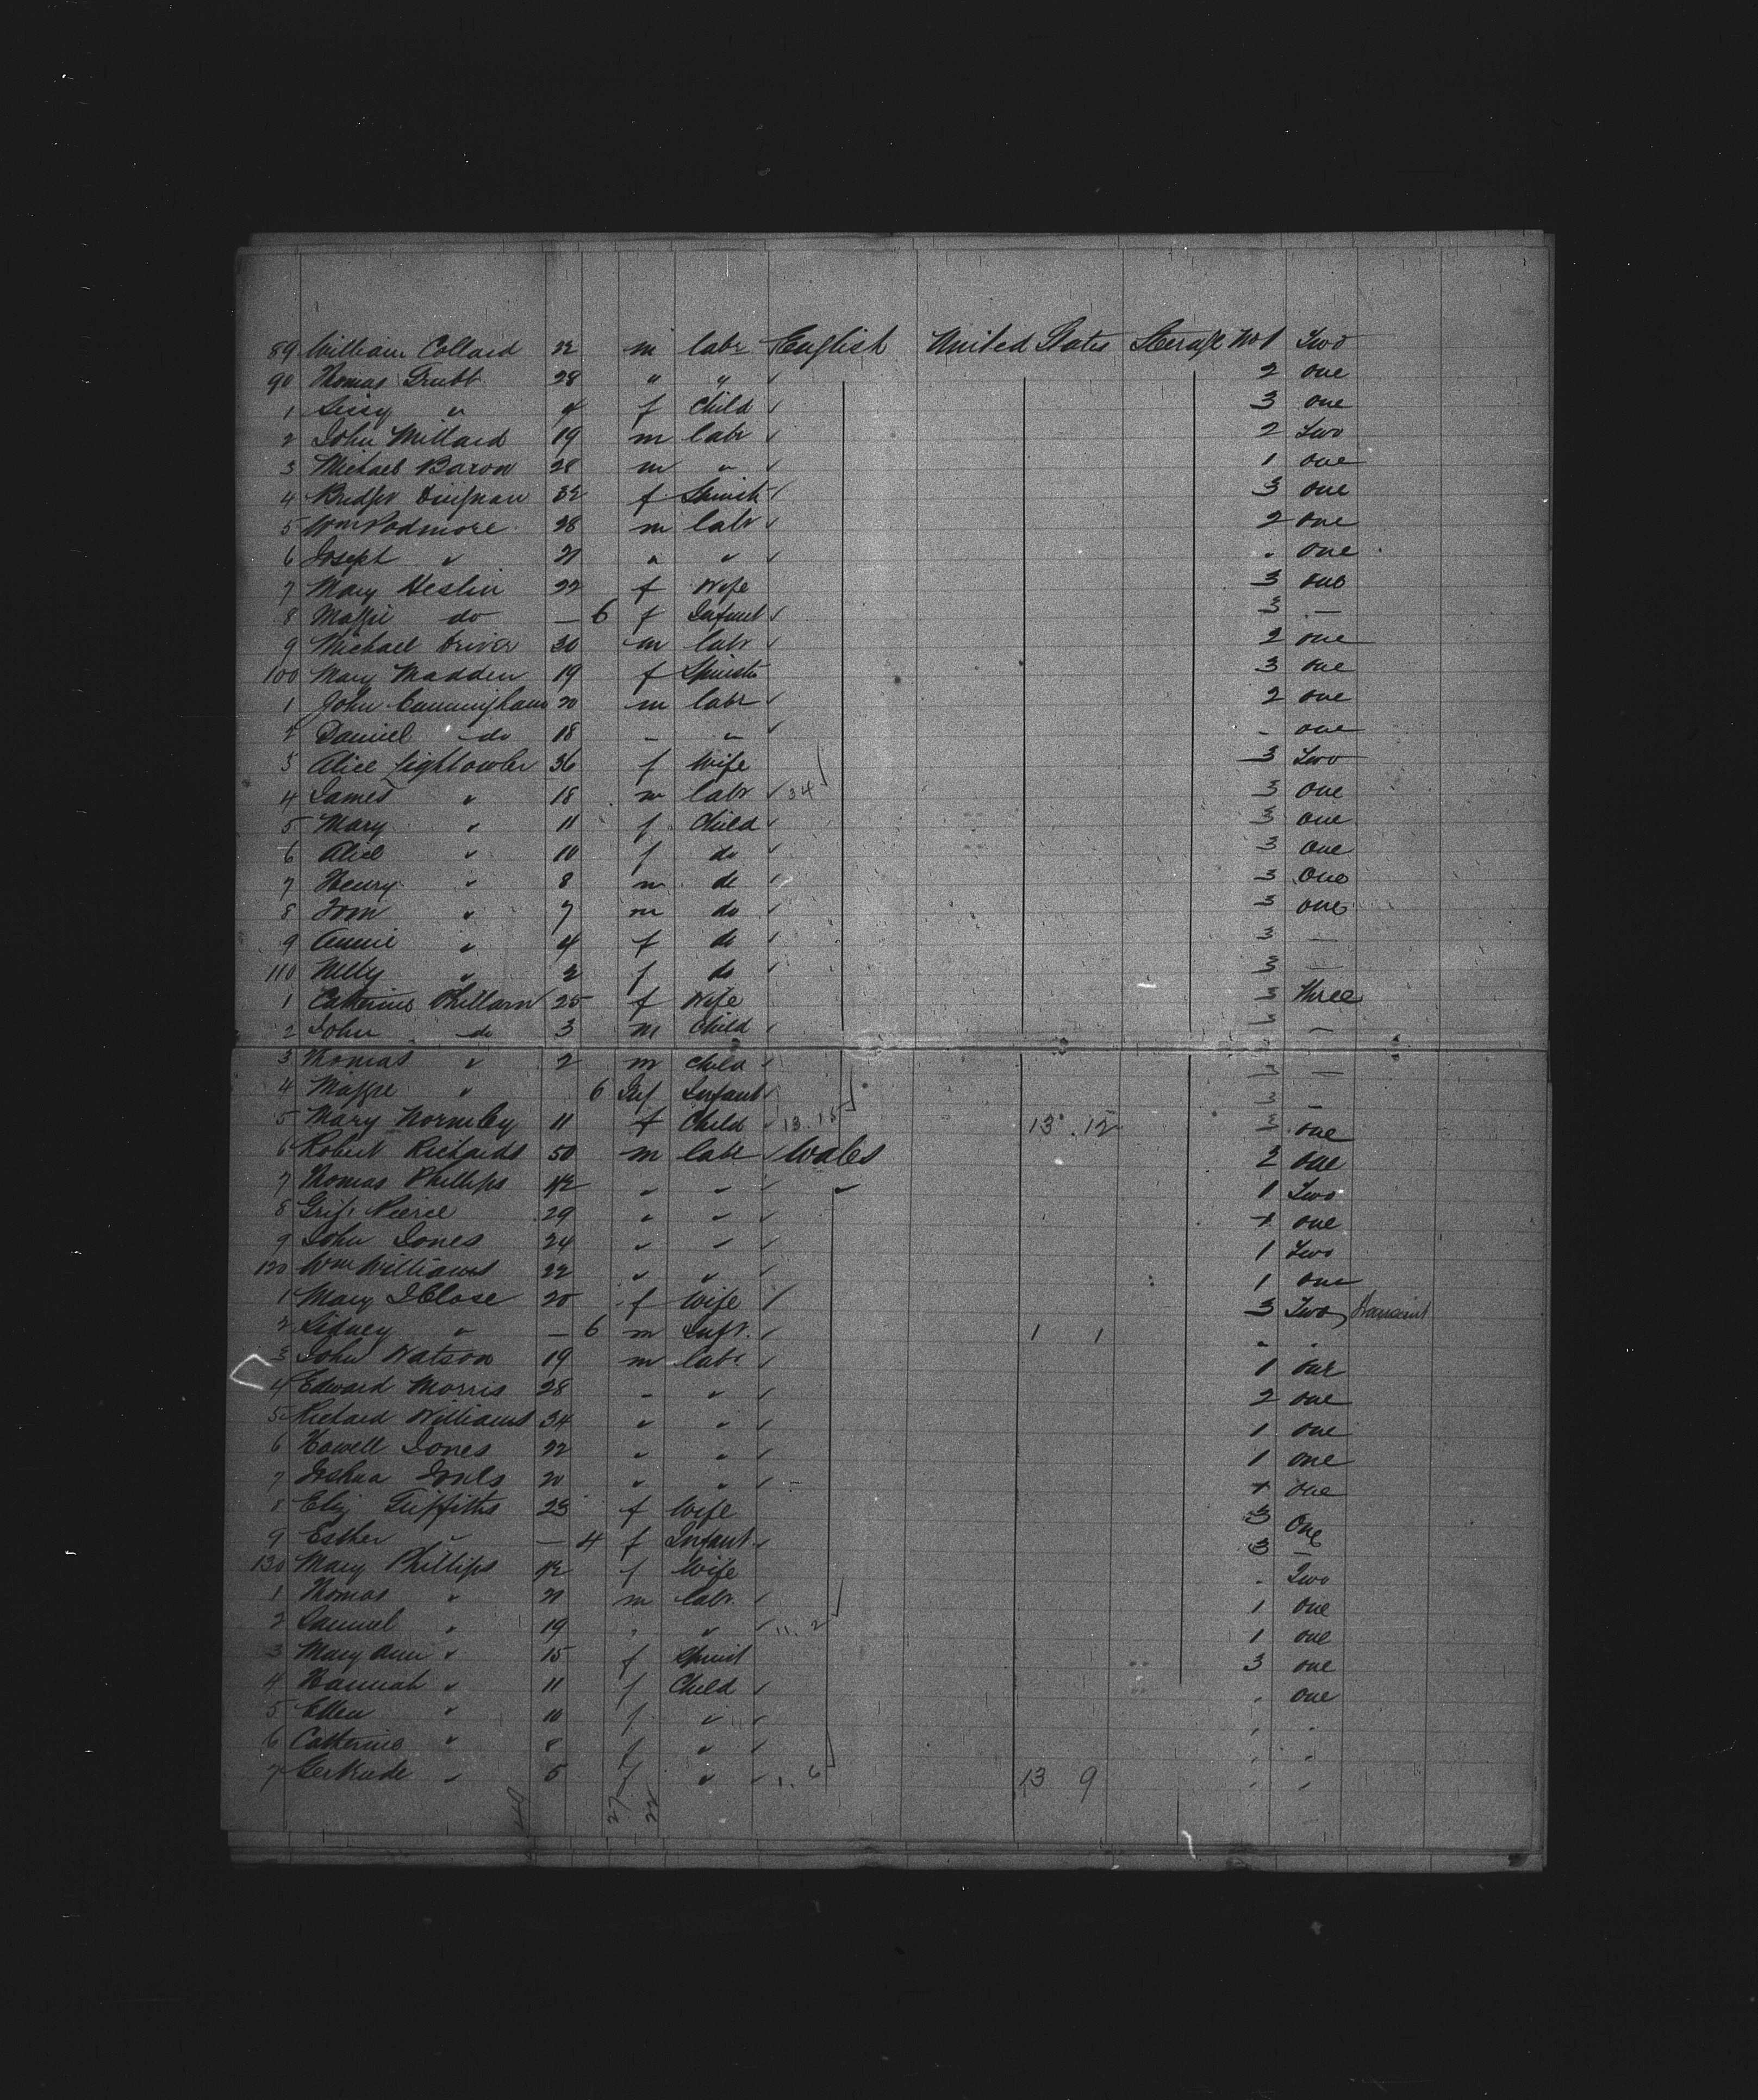 89 William Collard 22 m labr English United States Steerage No 1 Two
90 Thomas Grubb 28 " " ✓ 2 one
1 Lissy " 4 f Child ✓ 3 one
2 John Millard 19 m labr ✓ 2 Two
3 Michael Baron 28 m " ✓ 1 one
4 32 f Spinstr ✓ 3 one
5 Wm Podmore 28 m labr ✓ 2 one
6 Joseph " 21 " " ✓ " one
7 Mary Heslin 22 f Wife 3 one
8 Maggie do — 6 f Infant ✓ 3 —
9 Michael Driver 30 m labr ✓ 2 one
100 Mary Madden 19 f Spinstr 3 one
1 John Cunningham 20 m labr ✓ 2 one
2 Daniel do 18 " " ✓ " one
3 Alice Lightowler 36 f Wife 3 Two
4 James " 18 m labr ✓ 34 3 one
5 Mary " 11 f Child ✓ 3 one
6 Alice " 10 f do ✓ 3 one
7 Henry " 8 m do ✓ 3 One
8 Tom " 7 m do ✓ 3 one
9 Annie " 4 f do ✓ 3 —
110 Nelly " 2 f do ✓ 3 —
1 Catherine 25 f Wife 3 Three
2 John do 3 m Child ✓ 3 —
3 Thomas " 2 m Child ✓ 3 —
4 Maggie " 6 Inf Infant ✓ 3 —
5 Mary Normley 11 f Child ✓ 13.15 13 . 12 3 one
6 Robert Richards 50 m labr ✓ Wales 2 one
7 Thomas Phillips 42 " " ✓ " 1 Two
8 Grif. Pierce 29 " " ✓ 1 one
9 John Jones 24 " " ✓ 1 Two
120 Wm Williams 22 " " ✓ 1 one
1 Mary J Close 20 f Wife ✓ 3 Two
2 Sidney " — 6 m Inft. ✓ 1 1 " "
3 John Watson 19 m labr ✓ 1 one
4 Edward Morris 28 " " ✓ 2 one
5 Richard Williams 34 " " ✓ 1 one
6 Howell Jones 22 " " ✓ 1 one
7 Joshua Jones 20 " " ✓ 1 one
8 Eliz Griffiths 23 f Wife 3 One
9 Esther " — 4 f Infant ✓ 3 —
130 Mary Phillips 42 f Wife " Two
1 Thomas " 21 m labr ✓ 1 one
2 Samuel " 19 " " ✓ 11. 2 1 one
3 Mary Ann " 15 f Spinst 3 one
4 Hannah " 11 f Child ✓ " one
5 Ellen " 10 f " ✓ " "
6 Catherine " 8 f " ✓ " "
7 Gertrude " 5 f " ✓ 1. 6 13 9 " "
27 22